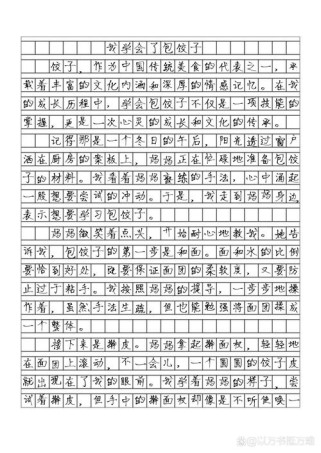 我学会了包饺子
饺子，作为中国传统美食的代表之一，承
载着丰富的文化内涵和深厚的情感记忆。在我
的成长历程中，学会包饺子不仅是一项技能的
掌握，更是一次心灵的成长和文化的传承。
记得那是一个冬日的午后，阳光透过窗户
洒在厨房的案板上，妈妈正在忙碌地准备包饺
子的材料。我看着妈妈熟练的手法，心中涌起
一股想要尝试的冲动。于是，我走到妈妈身边，
表示想要学习包饺子。
妈妈微笑着点头，开始耐心地教我。她告
诉我，包饺子的第一步是和面。面和水的比例
要恰到好处，既要保证面团的柔软度，又要防
止过于粘手。我按照妈妈的指导，一步步地操
作着，虽然手法生疏，但也能勉强将面团揉成
一个整体。
接下来是擀皮。妈妈拿起擀面杖，轻轻地
在面团上滚动，不一会儿，一个圆圆的饺子皮
就出现在了我的眼前。我学着妈妈的样子，尝
试着擀皮，但手中的擀面杖却像是不听使唤一